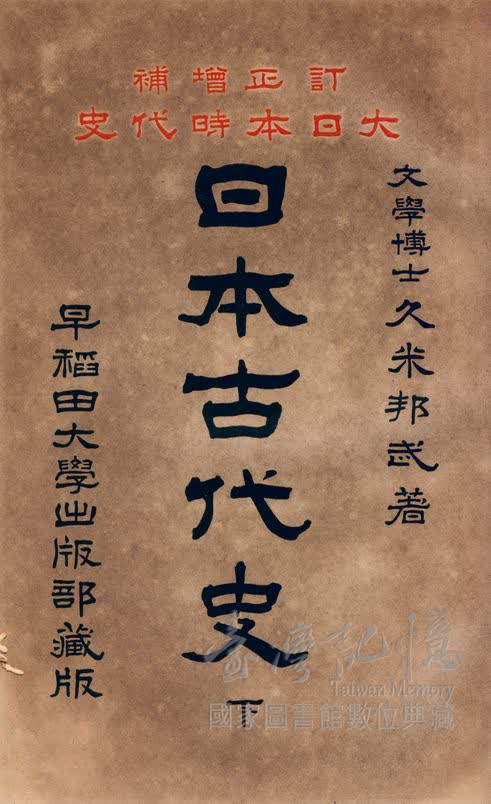 訂正增補
大日本時代史
文學博士久米邦武著
日本古代史下
早稻田大學出版部藏版
臺灣記憶
Taiwan Memory
國家圖書館數位典藏